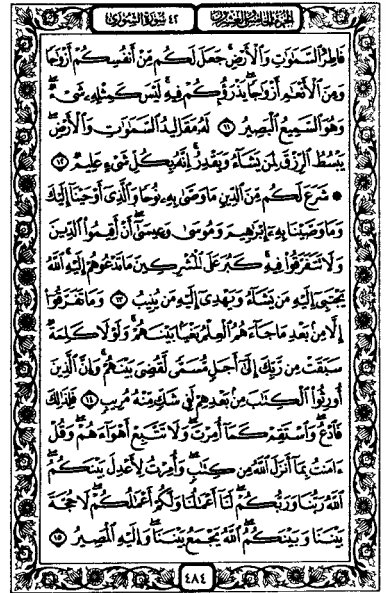 الجزء الخامس والعشرون ٤٢ سورة الشورى
فَاطِرُ السَّمَٰوَٰتِ وَالْأَرْضِ جَعَلَ لَكُم مِّنْ أَنفُسِكُمْ أَزْوَٰجًا
وَمِنَ الْأَنْعَٰمِ أَزْوَٰجًا يَذْرَؤُكُمْ فِيهِ لَيْسَ كَمِثْلِهِ شَيْءٌ
وَهُوَ السَّمِيعُ الْبَصِيرُ ١١ لَهُ مَقَالِيدُ السَّمَٰوَٰتِ وَالْأَرْضِ
يَبْسُطُ الرِّزْقَ لِمَن يَشَآءُ وَيَقْدِرُ إِنَّهُ بِكُلِّ شَيْءٍ عَلِيمٌ ١٢
* شَرَعَ لَكُم مِّنَ الدِّينِ مَا وَصَّىٰ بِهِ نُوحًا وَالَّذِي أَوْحَيْنَا إِلَيْكَ
وَمَا وَصَّيْنَا بِهِ إِبْرَٰهِيمَ وَمُوسَىٰ وَعِيسَىٰ أَنْ أَقِيمُوا الدِّينَ
وَلَا تَتَفَرَّقُوا فِيهِ كَبُرَ عَلَى الْمُشْرِكِينَ مَا تَدْعُوهُمْ إِلَيْهِ اللَّهُ
يَجْتَبِي إِلَيْهِ مَن يَشَآءُ وَيَهْدِي إِلَيْهِ مَن يُنِيبُ ١٣ وَمَا تَفَرَّقُوا
إِلَّا مِن بَعْدِ مَا جَآءَهُمُ الْعِلْمُ بَغْيًا بَيْنَهُمْ وَلَوْلَا كَلِمَةٌ
سَبَقَتْ مِن رَّبِّكَ إِلَىٰ أَجَلٍ مُّسَمًّى لَّقُضِيَ بَيْنَهُمْ وَإِنَّ الَّذِينَ
أُورِثُوا الْكِتَٰبَ مِن بَعْدِهِمْ لَفِي شَكٍّ مِّنْهُ مُرِيبٍ ١٤ فَلِذَٰلِكَ
فَادْعُ وَاسْتَقِمْ كَمَآ أُمِرْتَ وَلَا تَتَّبِعْ أَهْوَآءَهُمْ وَقُلْ
ءَامَنتُ بِمَآ أَنزَلَ اللَّهُ مِن كِتَٰبٍ وَأُمِرْتُ لِأَعْدِلَ بَيْنَكُمُ
اللَّهُ رَبُّنَا وَرَبُّكُمْ لَنَآ أَعْمَٰلُنَا وَلَكُمْ أَعْمَٰلُكُمْ لَا حُجَّةَ
بَيْنَنَا وَبَيْنَكُمُ اللَّهُ يَجْمَعُ بَيْنَنَا وَإِلَيْهِ الْمَصِيرُ ١٥
٤٨٤